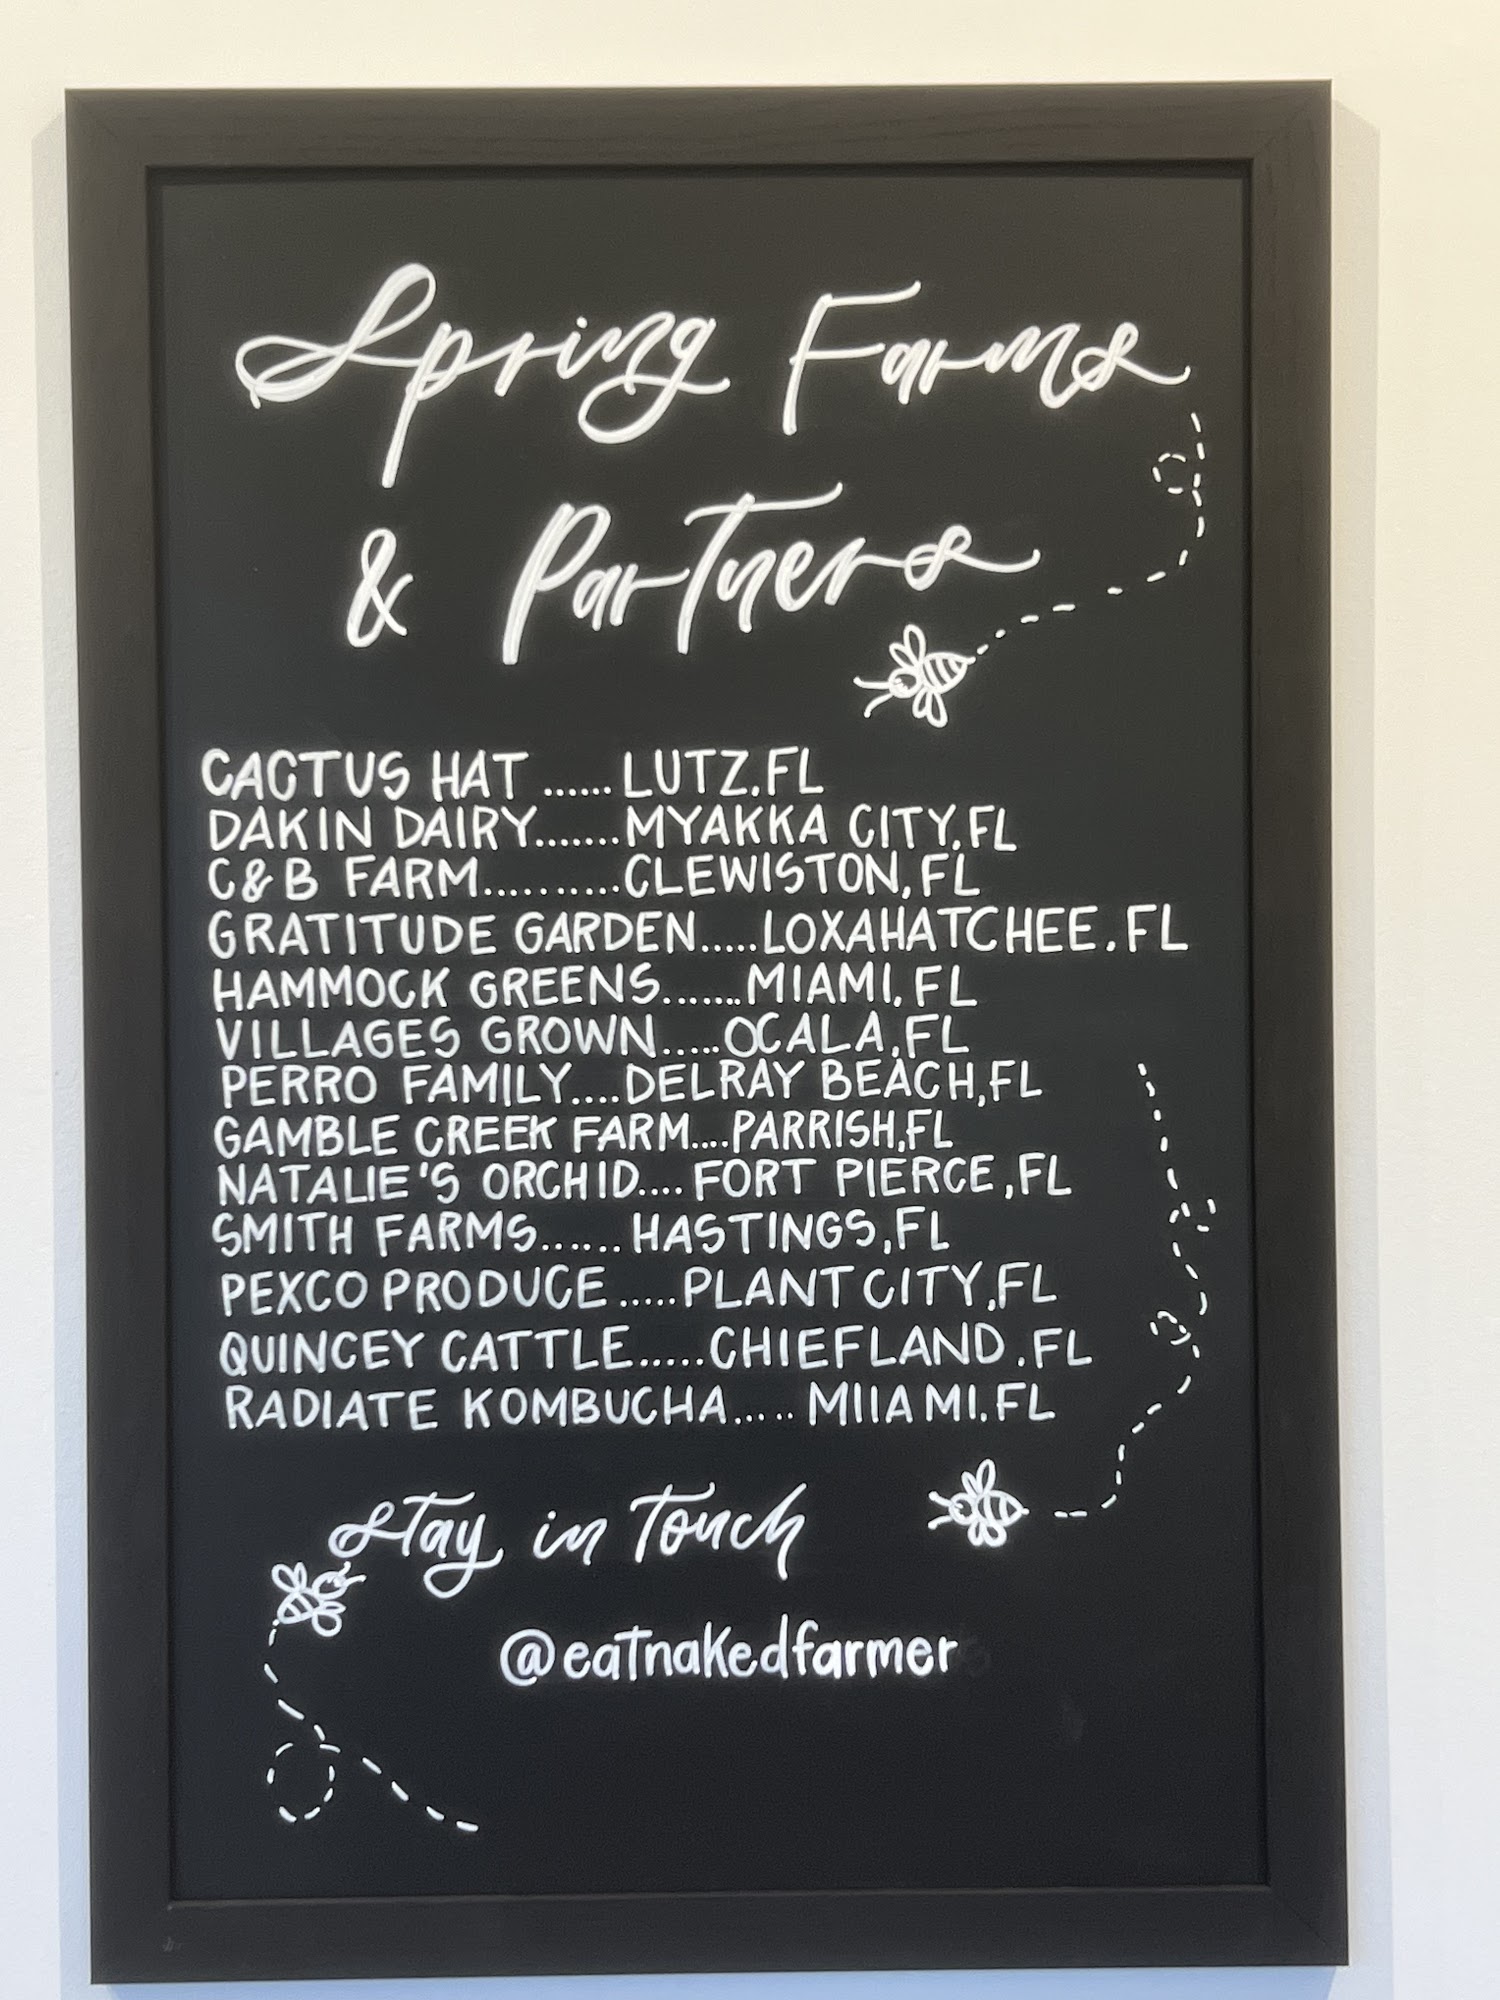 Spring Farms
& Partners
CACTUS HAT ...... LUTZ, FL
DAKIN DAIRY....... MYAKKA CITY, FL
C&B FARM.......... CLEWISTON, FL
GRATITUDE GARDEN..... LOXAHATCHEE, FL
HAMMOCK GREENS....... MIAMI, FL
VILLAGES GROWN..... OCALA, FL
PERRO FAMILY.... DELRAY BEACH, FL
GAMBLE CREEK FARM.... PARRISH, FL
NATALIE'S ORCHID.... FORT PIERCE, FL
SMITH FARMS...... HASTINGS, FL
PEXCO PRODUCE ..... PLANT CITY, FL
QUINCEY CATTLE..... CHIEFLAND, FL
RADIATE KOMBUCHA..... MIIAMI, FL
Stay in Touch
@eatnakedfarmer